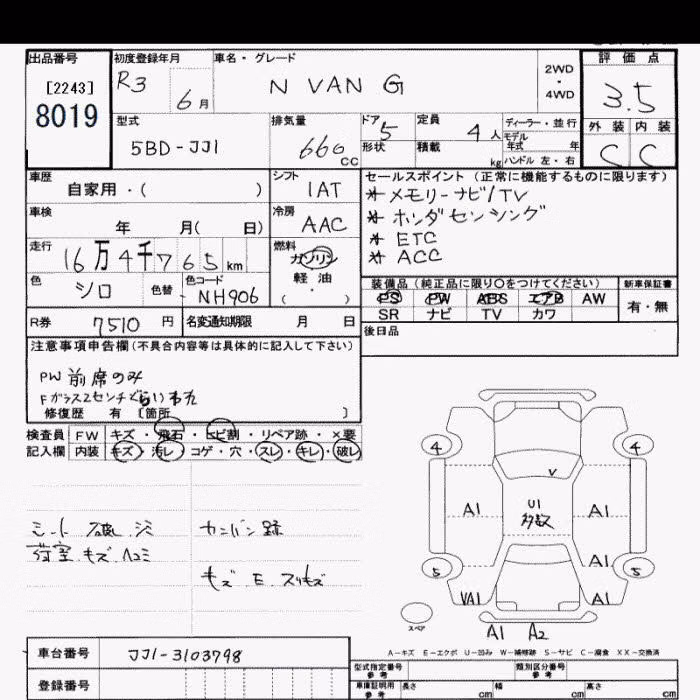 出品番号
[2243]
8019
初度登録年月
R3 6月
車名・グレード
N VAN G
2WD
・
4WD
評価点
3.5
外装 内装
C C
型式
5BD-JJ1
排気量
660cc
ドア
5
形状
定員
4人
積載
kg
ディーラー・並行
モデル
年式 年
ハンドル 左・右
車歴
自家用・( )
シフト
IAT
セールスポイント(正常に機能するものに限ります)
* メモリーナビ/TV
* ホンダセンシング
* ETC
* ACC
車検
年 月( 日)
冷房
AAC
走行
16万4千765km
燃料
ガソリン
軽・油
・( )
色
シロ
色替
色コード
NH906
装備品(純正品に限り○をつけてください)
PS PW ABS エアB AW
SR ナビ TV カワ
新車保証書
有・無
R券
7510円
名変通知期限 月 日
後日品
注意事項申告欄(不具合内容等は具体的に記入して下さい)
PW 前席のみ
Fガラス2センチぐらいわれ
修復歴 有 〔箇所 〕
検査員 FW キズ・飛石・ヒビ割・リペア跡・×要
記入欄 内装 キズ・汚レ・コゲ・穴・スレ・キレ・破レ
シート 破 シミ
荷室 キズ ヘコミ
カンバン跡
キズ E スリキズ
4 4
V
A1 U1 A1
多数
A1
5 5
VA1 A1
スペア
A1 A2
A−キズ E−エクボ U−凹み W−補修跡 S−サビ C−腐食 XX−交換済
車台番号
JJ1-3103798
登録番号
型式指定番号
参考
類別区分番号
参考
車庫証明用
参考
長さ cm 幅 cm 高さ cm